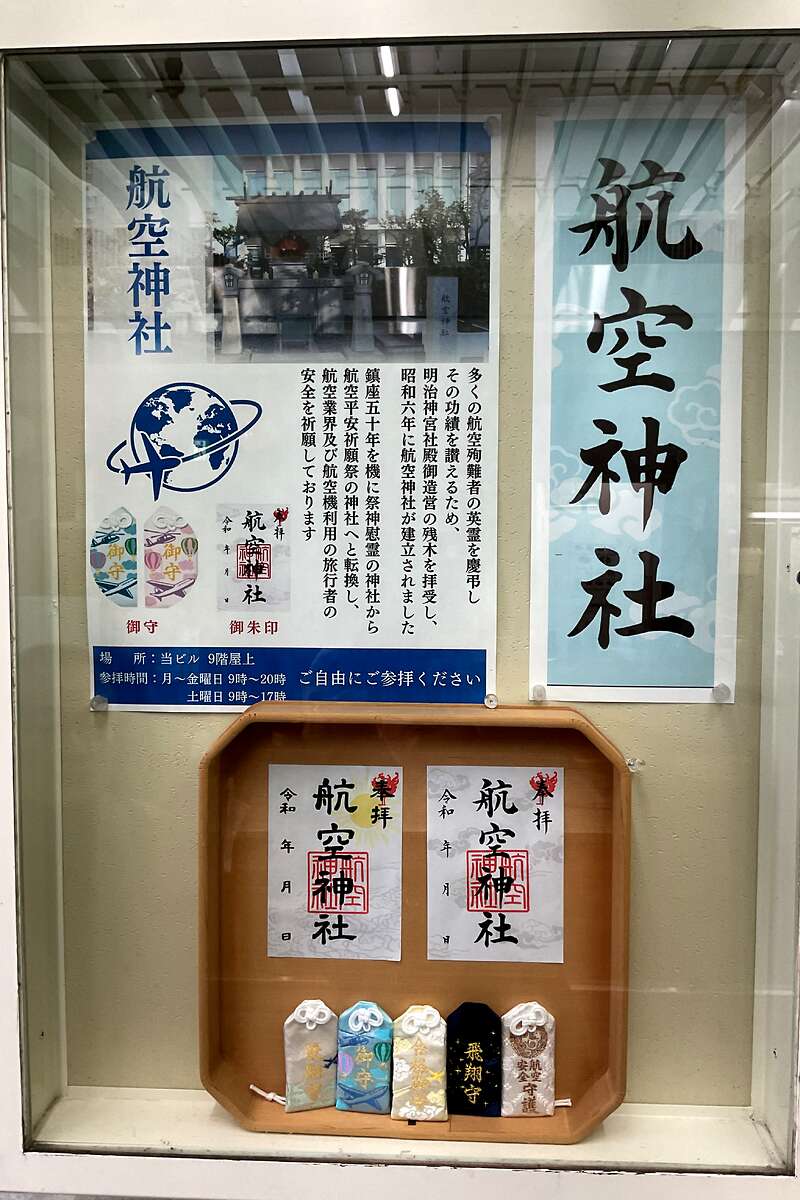 航空神社
航空神社
航空神社
多くの航空殉難者の英霊を慶弔し
その功績を讃えるため、
明治神宮社殿御造営の残木を拝受し、
昭和六年に航空神社が建立されました
鎮座五十年を機に祭神慰霊の神社から
航空平安祈願祭の神社へと転換し、
航空業界及び航空機利用の旅行者の
安全を祈願しております
御守
御守
奉拝
航空神社
令和 年 月 日
御守
御朱印
場 所：当ビル 9階屋上
参拝時間：月～金曜日 9時～20時
土曜日 9時～17時
ご自由にご参拝ください
奉拝
航空神社
航空神社
令和 年 月 日
奉拝
航空神社
航空神社
令和 年 月 日
御守
飛翔守
航空
安全
守護